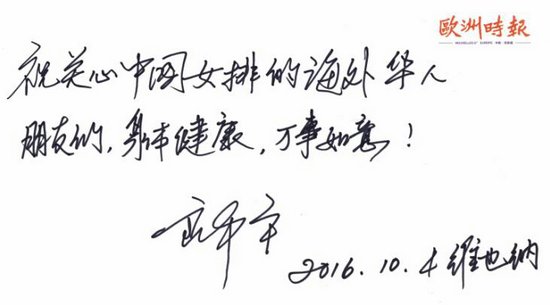 歐洲時報
祝关心中国女排的海外华人
朋友们,身体健康,万事如意!
2016.10.4 维也纳